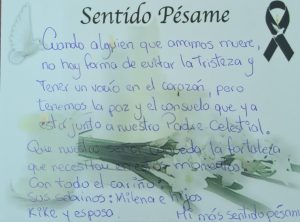 Sentido Pésame
Cuando alguien que amamos muere,
no hay forma de evitar la Tristeza y
Tener un vacío en el corazón, pero
tenemos la paz y el consuelo que ya
está junto a nuestro Padre Celestial.
Que nuestro la fortaleza
que necesitan en estos momentos
Con todo el cariño:
Sus sobrinos: Milena e hijos
Kike y esposa. Mi más sentido pésame